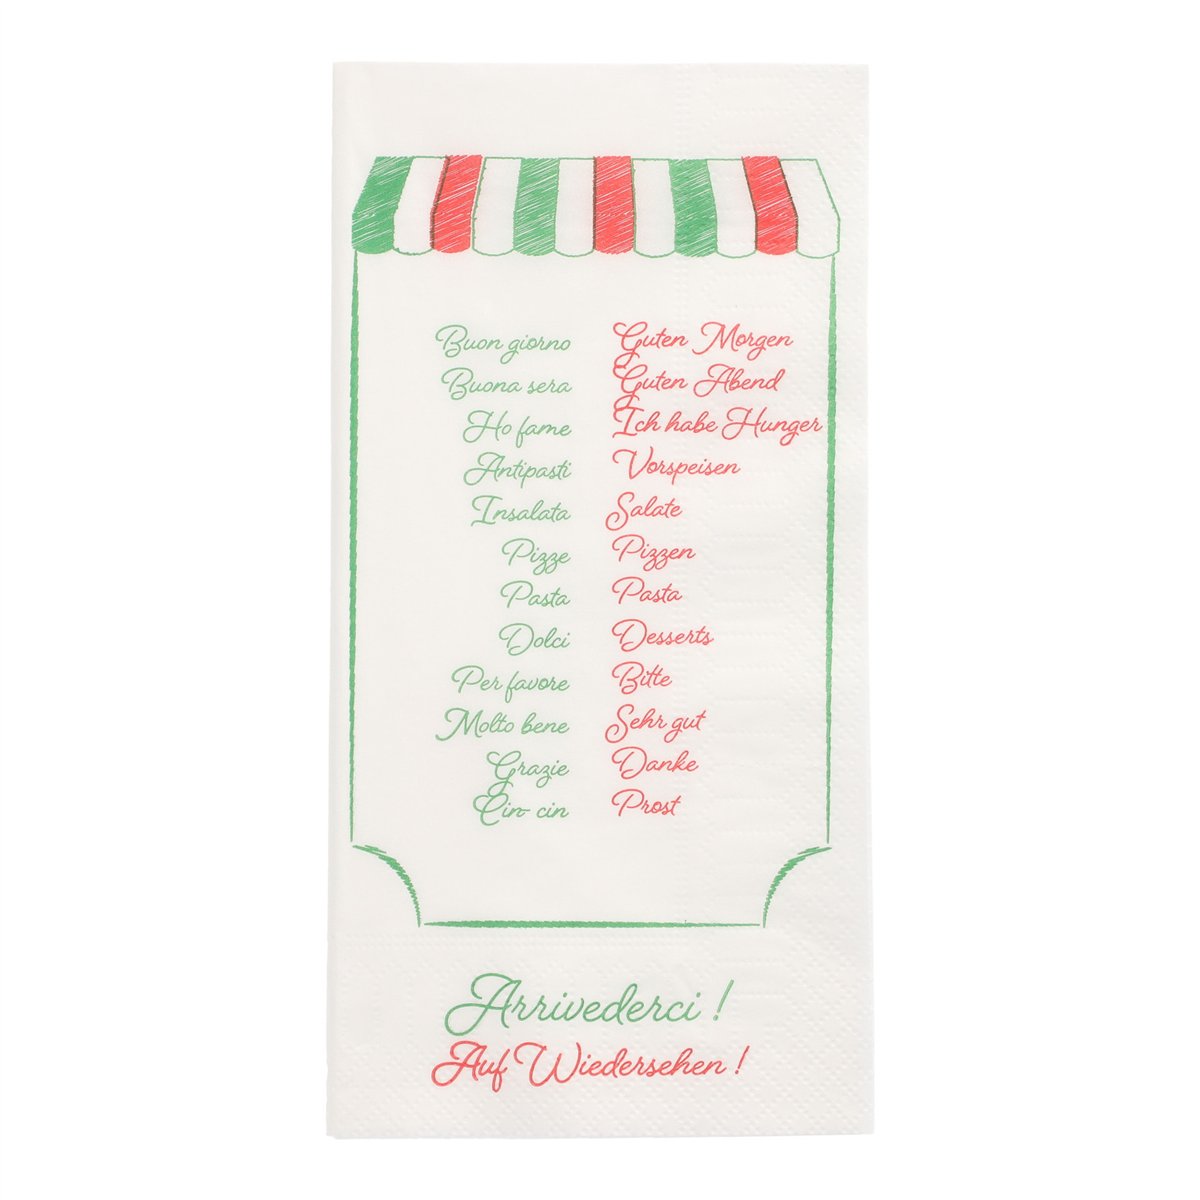 Buon giorno Guten Morgen
Buona sera Guten Abend
Ho fame Ich habe Hunger
Antipasti Vorspeisen
Insalata Salate
Pizze Pizzen
Pasta Pasta
Dolci Desserts
Per favore Bitte
Molto bene Sehr gut
Grazie Danke
Cin-cin Prost
Arrivederci !
Auf Wiedersehen !